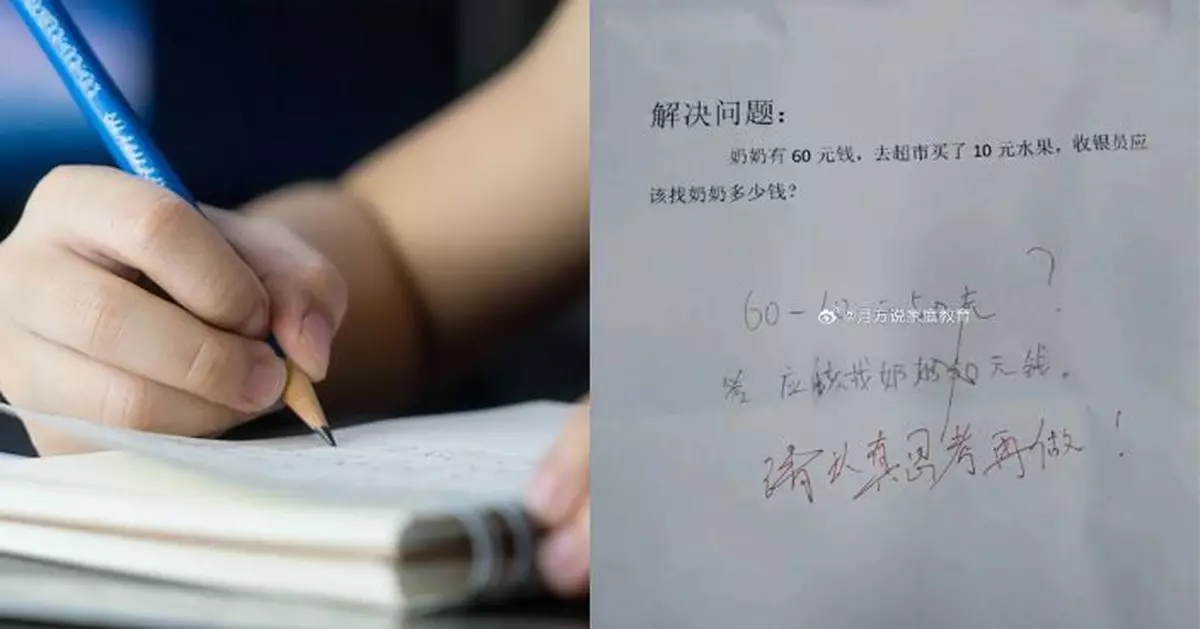 解决问题:
奶奶有 60 元钱，去超市买了 10 元水果，收银员应
该找奶奶多少钱？
?
60 -
@月方说家庭教育
答 应该找奶奶50元钱。
请认真思考再做！